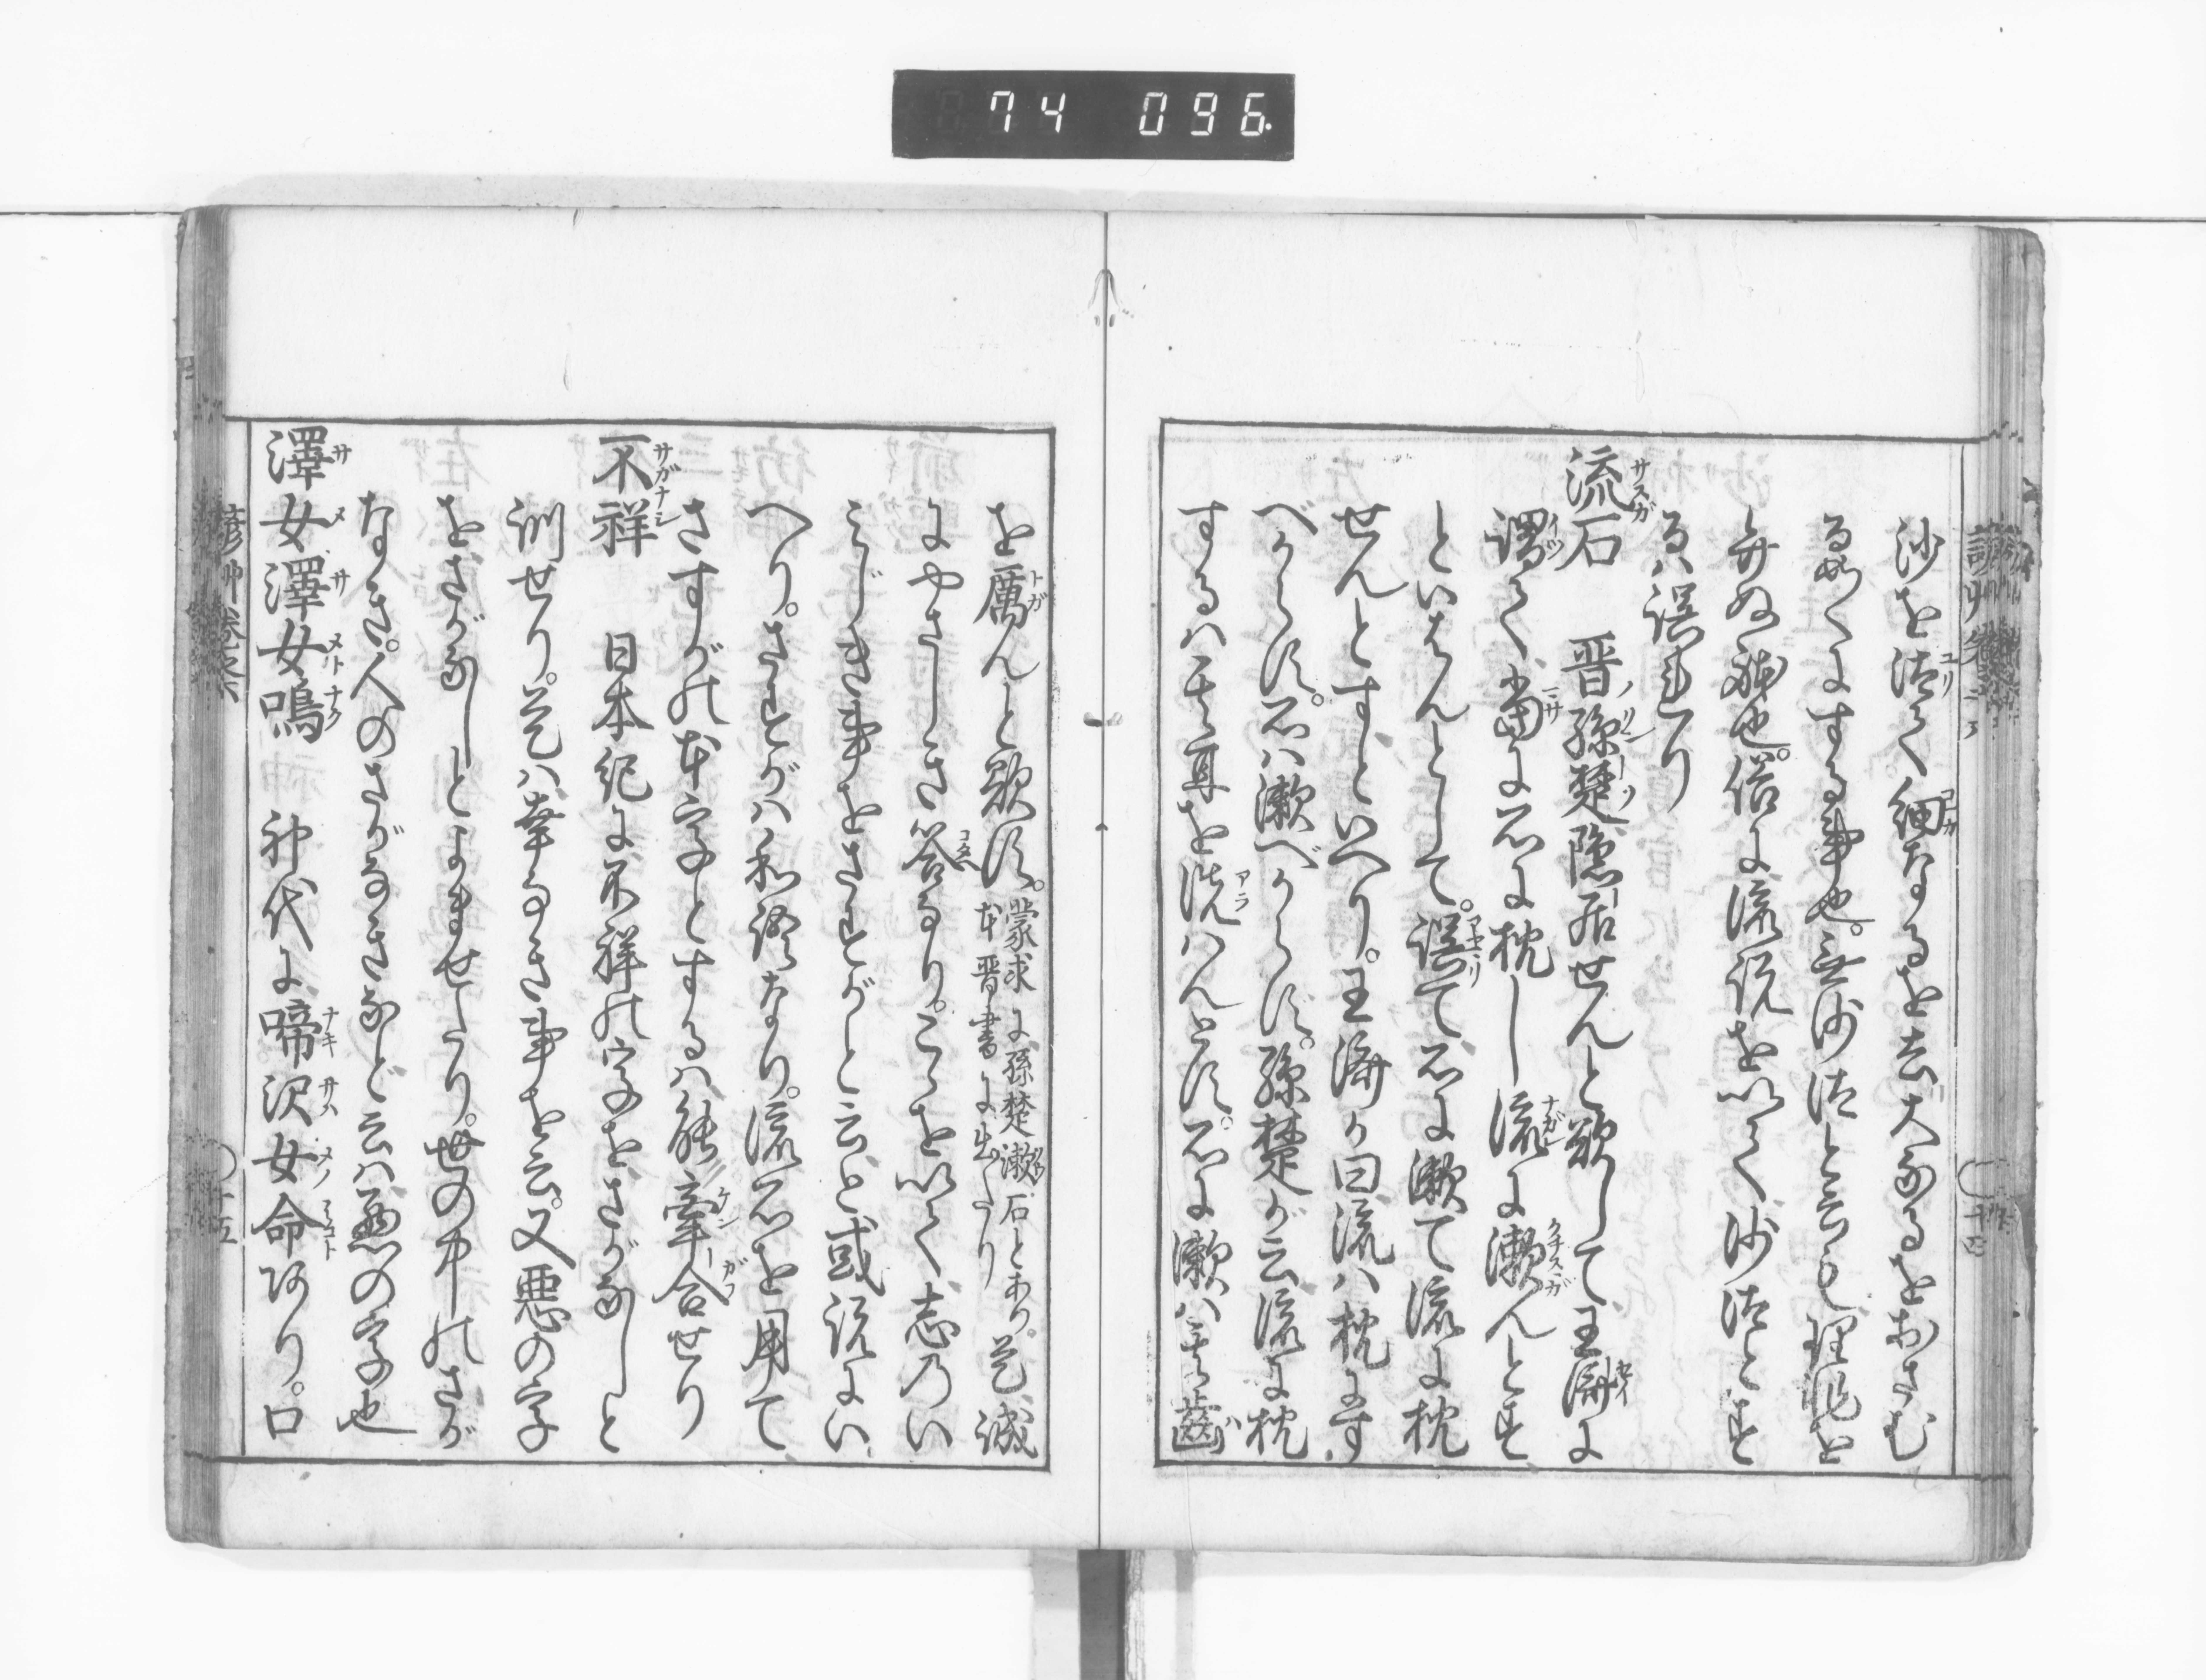 74 096
沙を汰て細なるを去大なるをおさむ
るごとくにする事也。無沙汰と云も理非を
弁ぬ義也。俗に流説を以て沙汰とす
るハ誤れり
流石 晋孫楚隠居せんと欲して王濟に
謂て當に石に枕し流に漱んとす
といはんとして。誤て石に漱て流に枕
せんとすといへり。王濟か曰流ハ枕に す
べからず。石ハ漱べからず。孫楚が云流に枕
するハ其耳を洗ハんとす。石に漱ハ其歯
を厲んと欲す。蒙求に孫楚漱石とあり。是誠
本晋書に出たり
にやさしき答なり。こゝを以て志乃い
みじき事をさすがと云と或説にい
へり。さすがハ和語なり。流石を用て
さすがの本字とするハ能牽合せり
不祥 日本紀に不祥の字をさがなしと
訓せり。是ハ幸なき事を云。又悪の字
をさがなしとよませたり。世の中のさが
なき。人のさがなきなど云ハ悪の字也
澤女澤女鳴 神代に啼沢女命あり。口
諺草 巻之六
十五